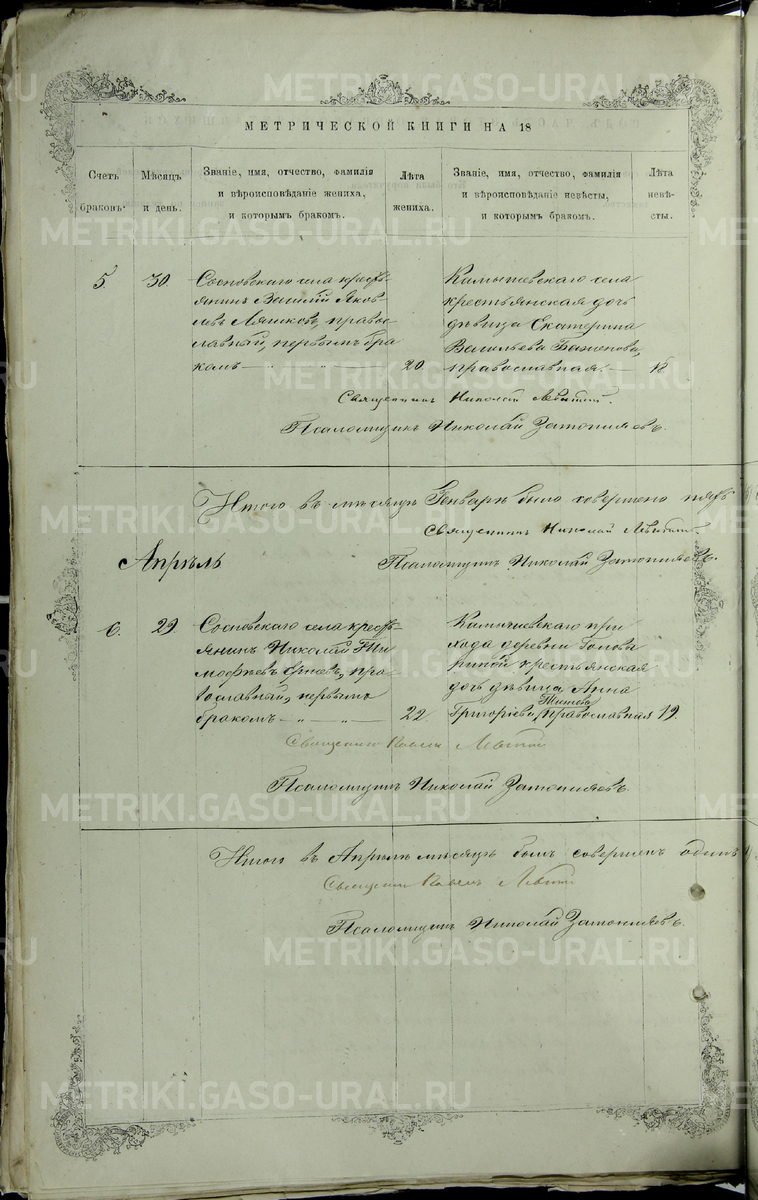 МЕТРИЧЕСКОЙ КНИГИ НА 18
Счетъ браковъ.
Мѣсяцъ и день.
Званіе, имя, отчество, фамилія и вѣроисповѣданіе жениха, и которымъ бракомъ.
Лѣта жениха.
Званіе, имя, отчество, фамилія и вѣроисповѣданіе невѣсты, и которымъ бракомъ.
Лѣта невѣсты.
5.
30.
Сосновскаго села кресть-
янинъ Василій Яков-
левъ Ляшковъ, правос-
лавный, первымъ бра-
комъ — „ — „ — 20.
Камышевскаго села
крестьянская дочь
дѣвица Екатерина
Васильева Баженова,
православная. — 18
Священникъ Николай Левитскій.
Псаломщикъ Николай
Итого въ мѣсяцѣ Генварѣ было совершено пять
Священникъ Николай
Апрѣль
Псаломщикъ Николай
6.
29
Сосновскаго села кресть-
янинъ Николай Ти-
мофѣевъ пра-
вославный, первымъ
бракомъ — „ — „ — 22
Камышевскаго при-
хода деревни
крестьянская
дочь дѣвица Анна
Григоріева, православная 19.
Священникъ
Псаломщикъ Николай
Итого въ Апрѣлѣ мѣсяцѣ былъ совершенъ одинъ
Священникъ
Псаломщикъ Николай
METRIKI.GASO-URAL.RU